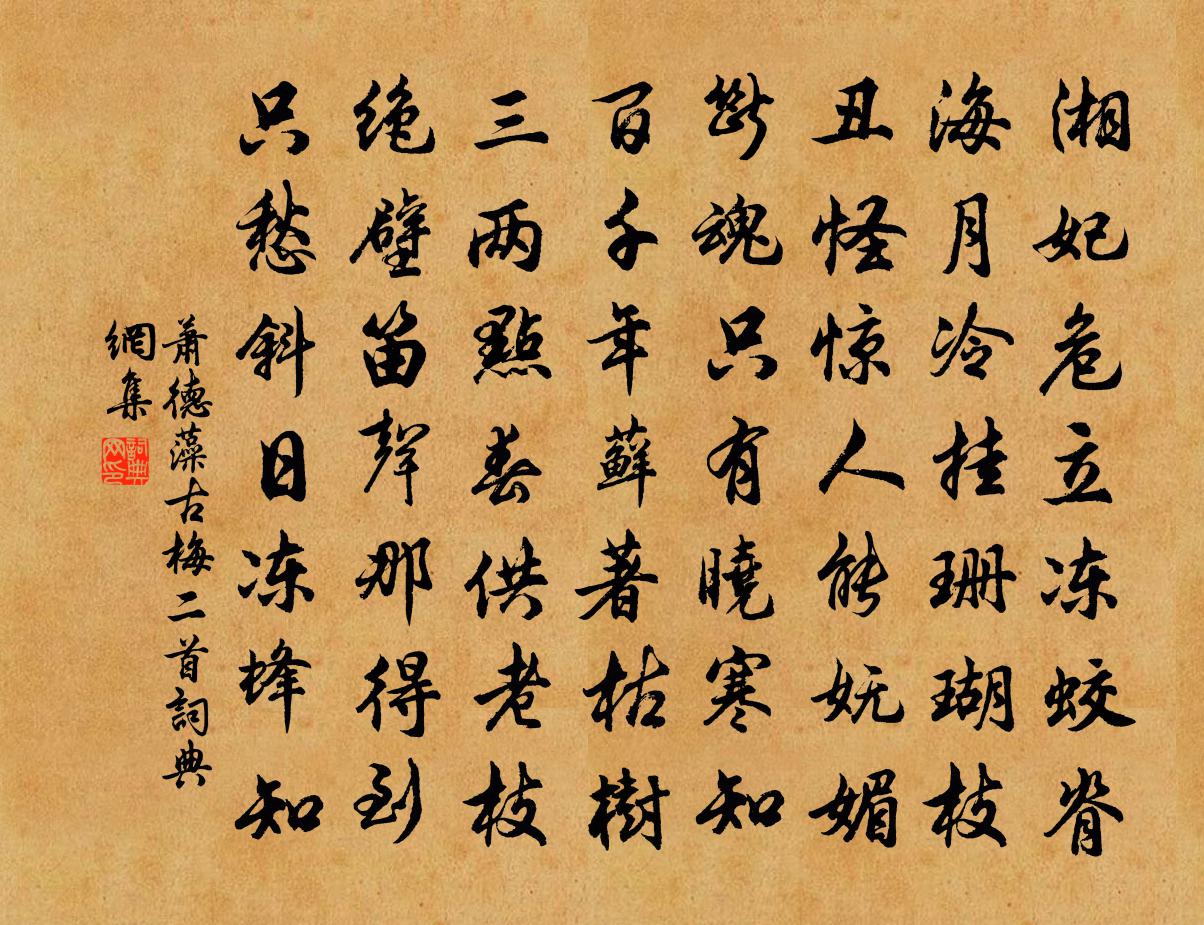 湘妃危立冻蛟脊
海月冷挂珊瑚枝
丑怪惊人能妩媚
断魂只有曉寒知
百千年蘚著枯樹
三两點春供老枝
绝壁笛聲那得到
只愁斜日冻蜂知
萧德藻古梅二首詞典
網集
詞典网印